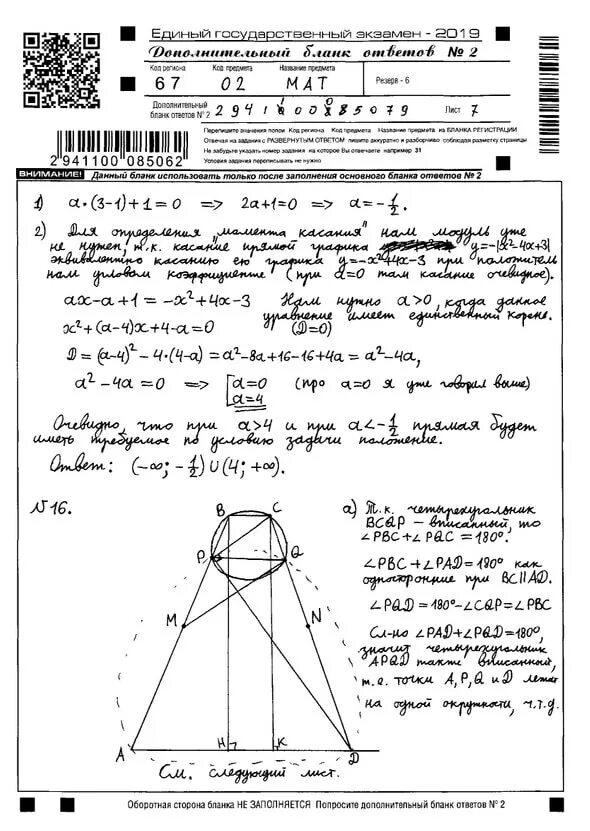 Единый государственный экзамен - 2019
Дополнительный бланк ответов № 2
Код региона Код предмета Название предмета
67 02 МАТ Резерв - 6
Дополнительный бланк ответов № 2 Лист 7
Перепишите значения полей Код региона Код предмета Название предмета из БЛАНКА РЕГИСТРАЦИИ
Отвечая на задания с РАЗВЕРНУТЫМ ОТВЕТОМ пишите аккуратно и разборчиво соблюдая разметку страницы
Не забудьте указать номер задания на которое Вы отвечаете например 31
Условия задания переписывать не нужно
2941100085062
ВНИМАНИЕ! Данный бланк использовать только после заполнения основного бланка ответов № 2
1) a·(3-1)+1=0 => 2a+1=0 => a=-1/2.
2) Для определения "момента касания" нам модуль уже
не нужен, т.к. касание прямой графика y=-|x²-4x+3|
эквивалентно касанию ею графика y=-x²+4x-3 при положитель
ном угловом коэффициенте (при a=0 там касание очевидное).
ax-a+1=-x²+4x-3 Нам нужно a>0, когда данное
уравнение имеет единственный корень.
x²+(a-4)x+4-a=0 (D=0)
D=(a-4)²-4·(4-a)=a²-8a+16-16+4a=a²-4a,
a²-4a=0 => [a=0 (про a=0 я уже говорил выше)
a=4
Очевидно, что при a>4 и при a<-1/2 прямая будет
иметь требуемое по условию задачи положение.
Ответ: (-∞; -1/2)∪(4; +∞).
№16.
B C
P Q
M N
A H K D
а) Т.к. четырехугольник
BCQP - вписанный, то
∠PBC+∠PQC=180°.
∠PBC+∠PAD=180° как
односторонние при BC||AD.
∠PQD=180°-∠CQP=∠PBC
Сл-но ∠PAD+∠PQD=180°,
значит четырехугольник
APQD также вписанный,
т.е. точки A, P, Q и D лежат
на одной окружности, ч.т.д.
См. следующий лист.
Оборотная сторона бланка НЕ ЗАПОЛНЯЕТСЯ Попросите дополнительный бланк ответов № 2